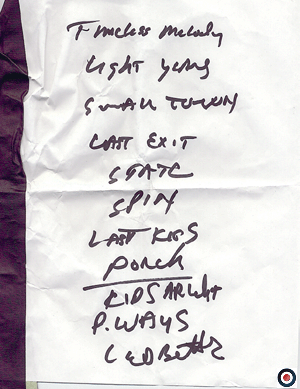 Timeless Melody
Light years
Small Town
LAST EXIT
STATE
SPIN
LAST KISS
PORCH
KIDS AR WHT
P. WAYS
LEDBETTR